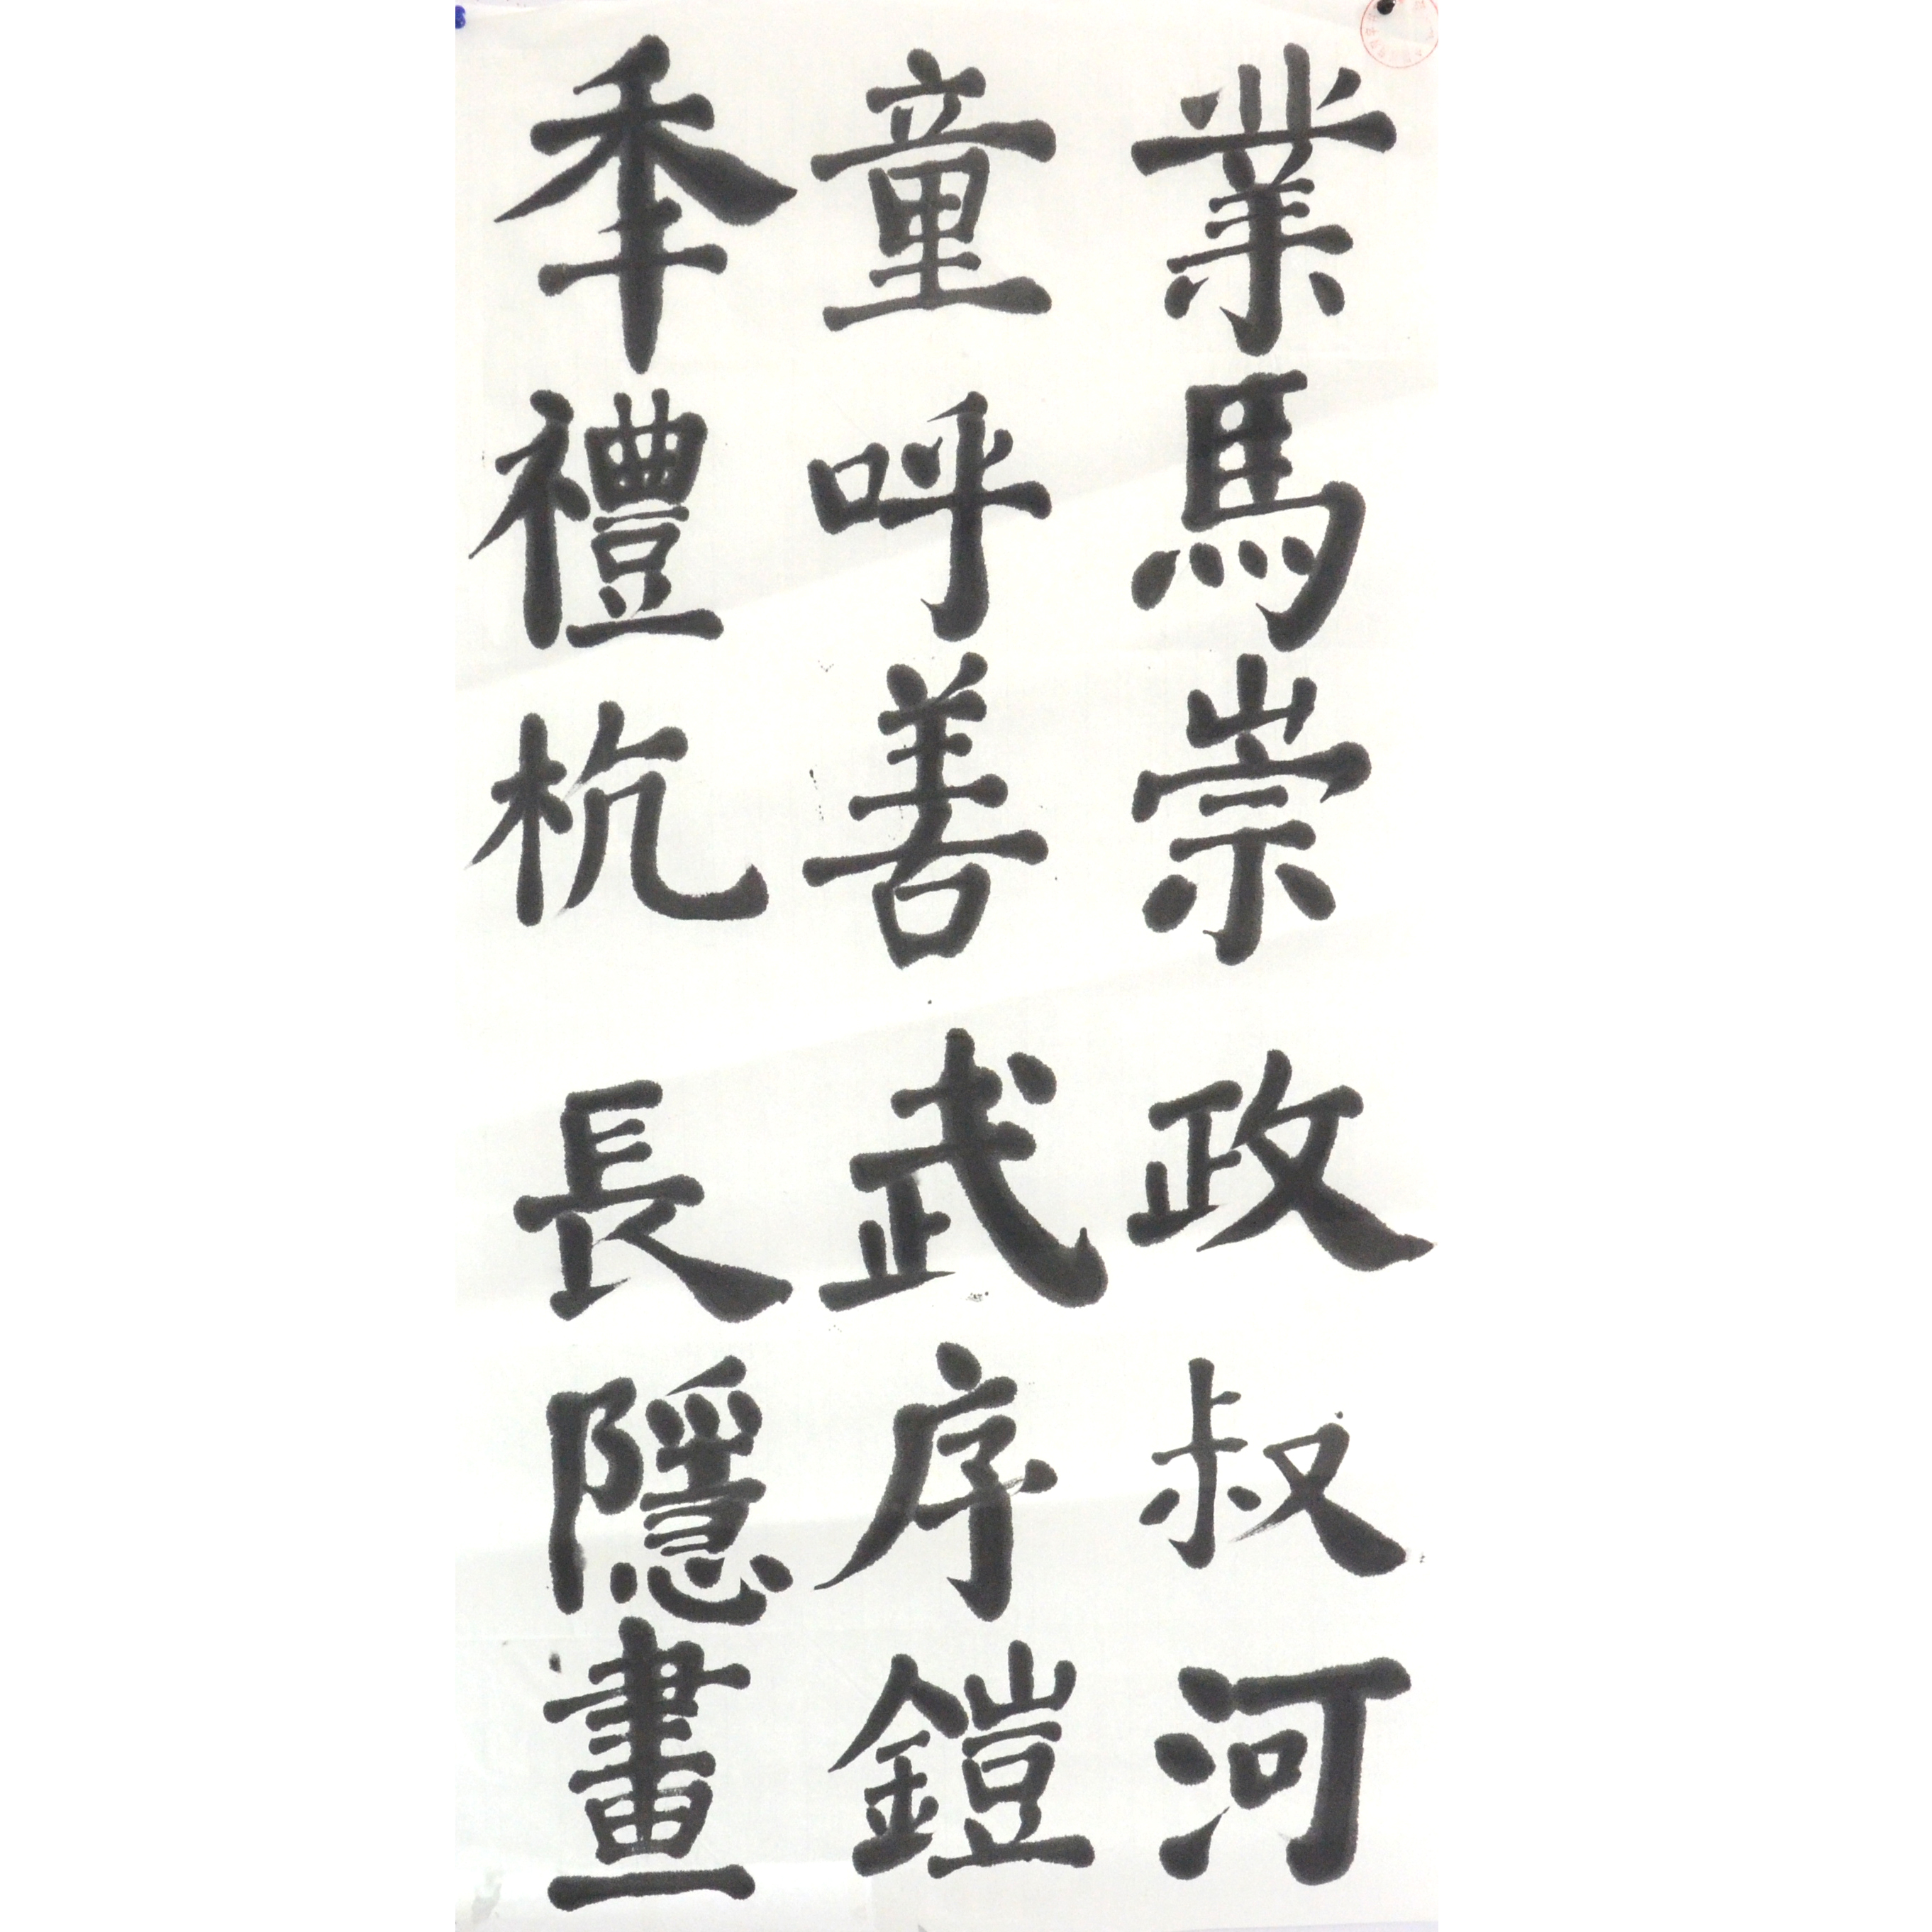 業馬崇政叔河
童呼善武序鎧
秊禮杭長隱畫